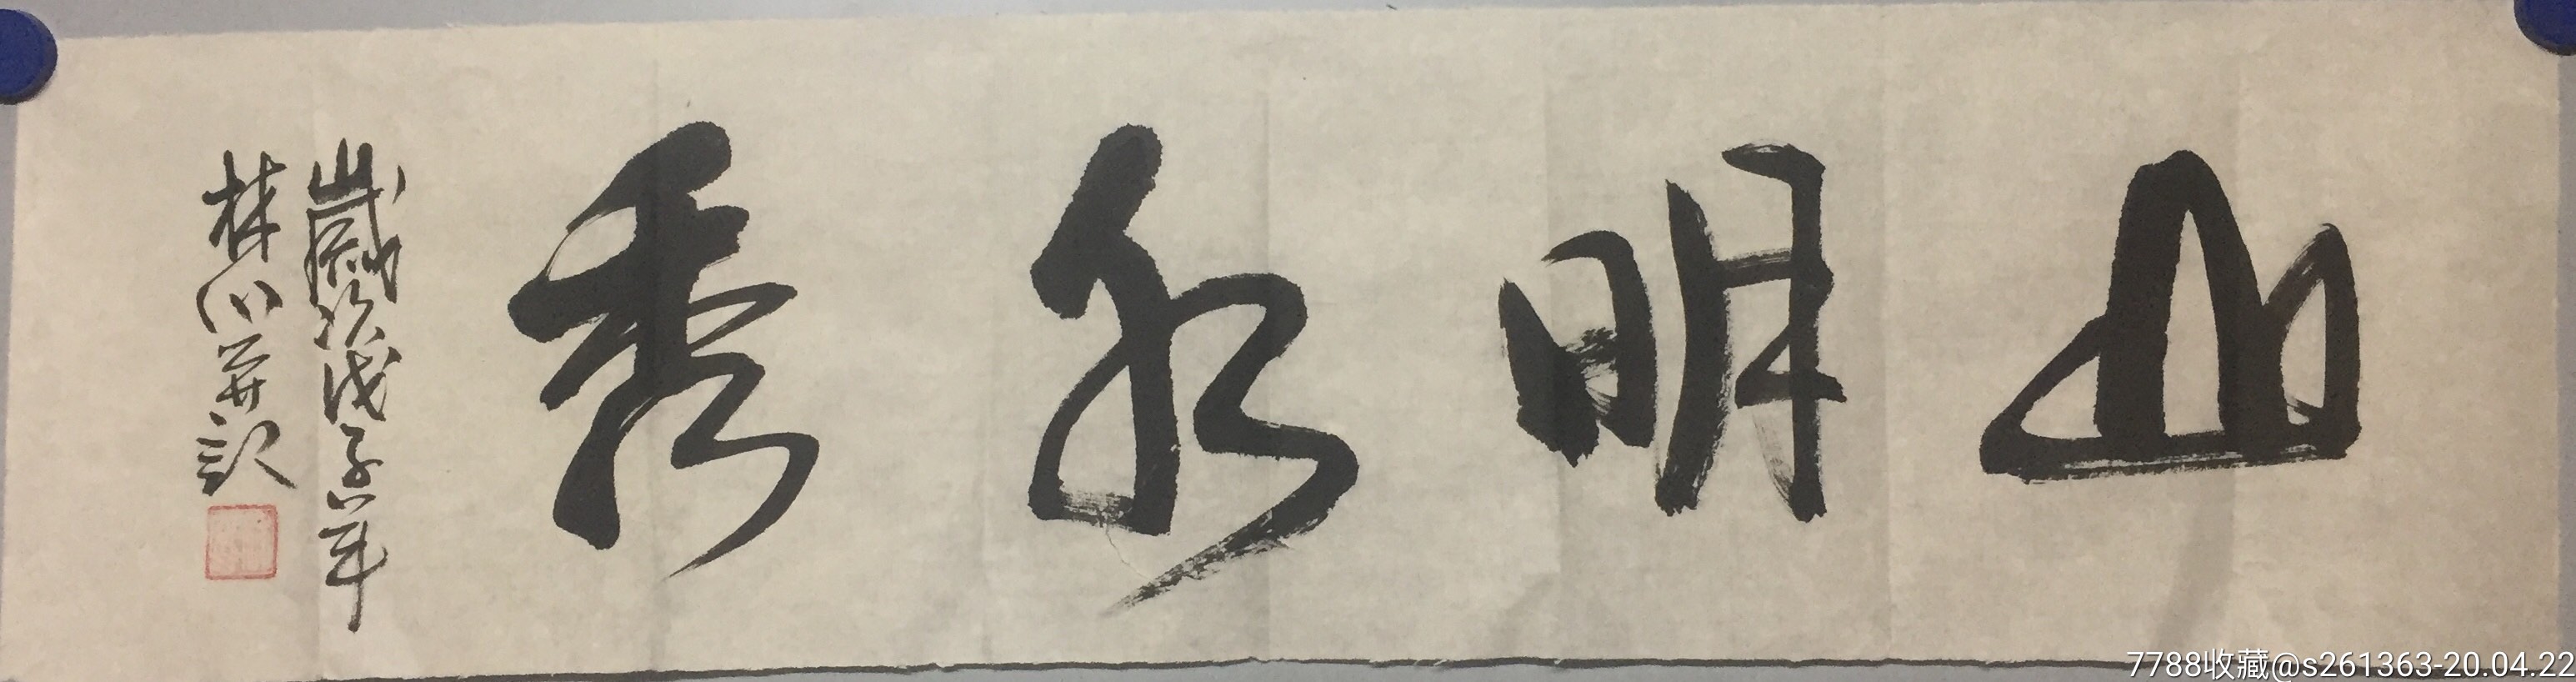 山明水秀
歲次戊子年
林川並記
7788收藏@s261363-20.04.22